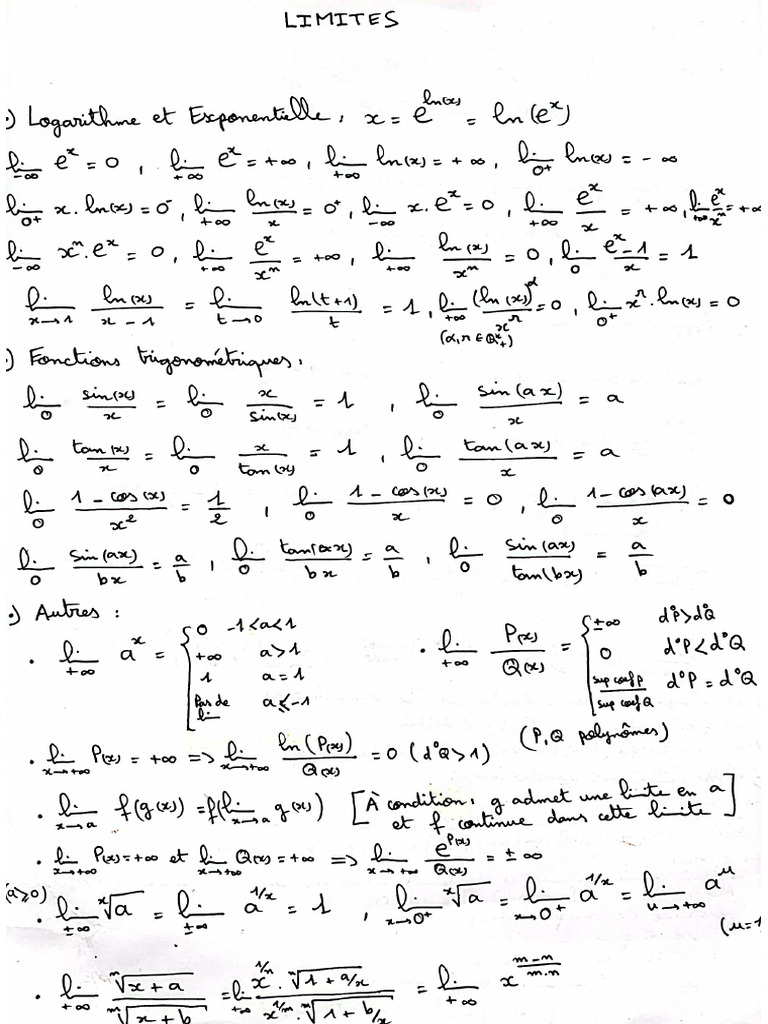 LIMITES
•) Logarithme et Exponentielle : x = e^ln(x) = ln(e^x)
lim_{-∞} e^x = 0 , lim_{+∞} e^x = +∞ , lim_{+∞} ln(x) = +∞ , lim_{0+} ln(x) = -∞
lim_{0+} x.ln(x) = 0^- , lim_{+∞} ln(x)/x = 0^+ , lim_{-∞} x.e^x = 0 , lim_{+∞} e^x/x = +∞ , lim_{+∞} e^x/x^n = +∞
lim_{-∞} x^n.e^x = 0 , lim_{+∞} e^x/x^n = +∞ , lim_{+∞} ln(x)/x^n = 0 , lim_{0} (e^x - 1)/x = 1
lim_{x→1} ln(x)/(x-1) = lim_{t→0} ln(t+1)/t = 1 , lim_{+∞} (ln(x))^α/x^r = 0 , lim_{0+} x^r.ln(x) = 0
(α, r ∈ Q*+)
•) Fonctions trigonométriques :
lim_{0} sin(x)/x = lim_{0} x/sin(x) = 1 , lim_{0} sin(ax)/x = a
lim_{0} tan(x)/x = lim_{0} x/tan(x) = 1 , lim_{0} tan(ax)/x = a
lim_{0} (1-cos(x))/x² = 1/2 , lim_{0} (1-cos(x))/x = 0 , lim_{0} (1-cos(ax))/x = 0
lim_{0} sin(ax)/bx = a/b , lim_{0} tan(ax)/bx = a/b , lim_{0} sin(ax)/tan(bx) = a/b
•) Autres :
• lim_{+∞} a^x = { 0 -1<a<1
+∞ a>1
1 a=1
Pas de lim a≤-1
• lim_{+∞} P(x)/Q(x) = { ±∞ d°P>d°Q
0 d°P<d°Q
sup coef P/sup coef Q d°P=d°Q
(P,Q polynômes)
• lim_{x→+∞} P(x) = +∞ => lim_{x→+∞} ln(P(x))/Q(x) = 0 (d°Q>1)
• lim_{x→a} f(g(x)) = f(lim_{x→a} g(x)) [À condition : g admet une limite en a
et f continue dans cette limite]
• lim_{x→+∞} P(x) = +∞ et lim_{x→+∞} Q(x) = +∞ => lim_{x→+∞} e^P(x)/Q(x) = ±∞
(a≥0)
• lim_{±∞} ˣ√a = lim_{±∞} a^{1/x} = 1 , lim_{x→0+} ˣ√a = lim_{x→0+} a^{1/x} = lim_{u→+∞} a^u
• lim_{+∞} ⁿ√(x+a)/ᵐ√(x+b) = lim_{+∞} x^{1/n}.ⁿ√(1+a/x)/x^{1/m}.ᵐ√(1+b/x) = lim_{+∞} x^{(m-n)/(m.n)}